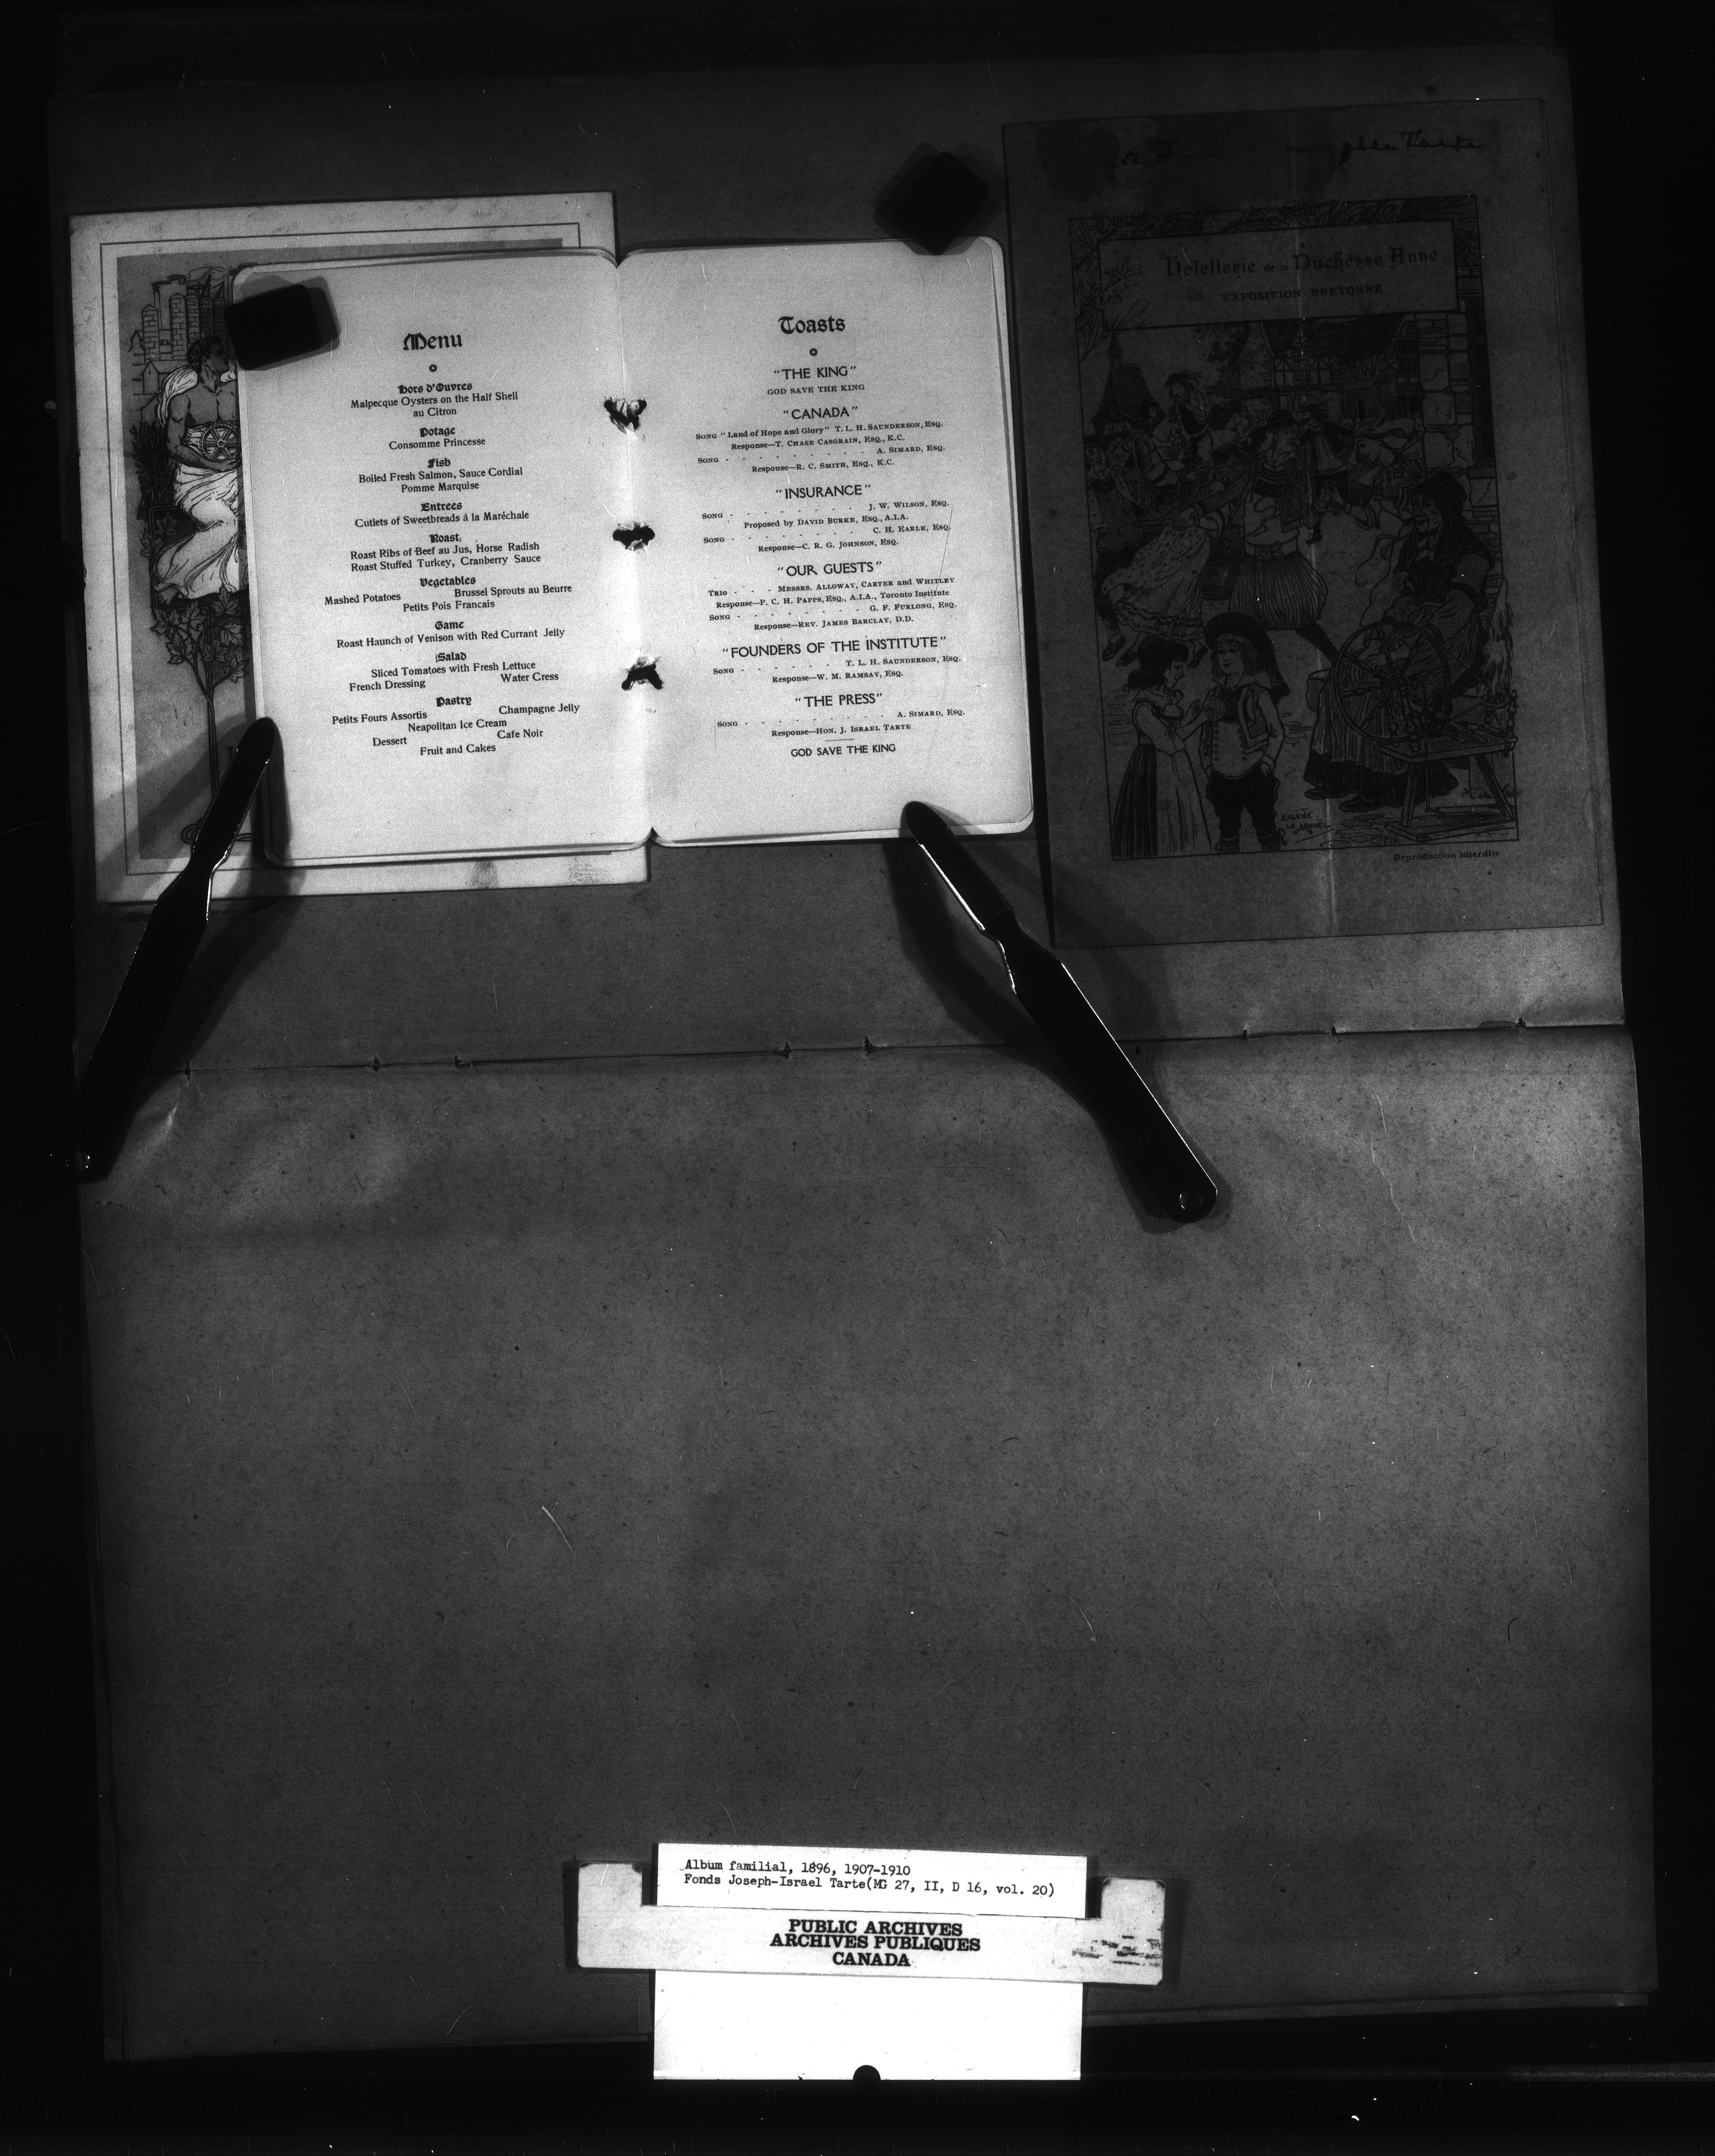 Menu
Hors d'Ouvres
Malpecque Oysters on the Half Shell
au Citron
Potage
Consomme Princesse
Fish
Boiled Fresh Salmon, Sauce Cordial
Pomme Marquise
Entrees
Cutlets of Sweetbreads à la Maréchale
Roast
Roast Ribs of Beef au Jus, Horse Radish
Roast Stuffed Turkey, Cranberry Sauce
Vegetables
Mashed Potatoes Brussel Sprouts au Beurre
Petits Pois Francais
Game
Roast Haunch of Venison with Red Currant Jelly
Salad
Sliced Tomatoes with Fresh Lettuce
French Dressing Water Cress
Pastry
Petits Fours Assortis Champagne Jelly
Neapolitan Ice Cream
Dessert Cafe Noir
Fruit and Cakes
Toasts
"THE KING"
GOD SAVE THE KING
"CANADA"
SONG "Land of Hope and Glory" T. L. H. SAUNDERSON, Esq.
Response—T. CHASE CASGRAIN, Esq., K.C.
SONG - - - - - - - - - A. SIMARD, Esq.
Response—R. C. SMITH, Esq., K.C.
"INSURANCE"
SONG - - - - - - - - - J. W. WILSON, Esq.
Proposed by DAVID BURKE, Esq., A.I.A.
SONG - - - - - - - - - C. H. EARLE, Esq.
Response—C. R. G. JOHNSON, Esq.
"OUR GUESTS"
TRIO - - - MESSRS. ALLOWAY, CARTER and WHITLEY
Response—P. C. H. PAPPS, Esq., A.I.A., Toronto Institute
SONG - - - - - - - - G. F. FURLONG, Esq.
Response—REV. JAMES BARCLAY, D.D.
"FOUNDERS OF THE INSTITUTE"
SONG - - - - - - T. L. H. SAUNDERSON, Esq.
Response—W. M. RAMSAY, Esq.
"THE PRESS"
SONG - - - - - - - - - A. SIMARD, Esq.
Response—HON. J. ISRAEL TARTE
GOD SAVE THE KING
Tarte
Hotellerie de la Duchesse Anne
EXPOSITION BRETONNE
EUGÈNE
LE MOUËL
Reproduction interdite
Album familial, 1896, 1907-1910
Fonds Joseph-Israel Tarte(MG 27, II, D 16, vol. 20)
PUBLIC ARCHIVES
ARCHIVES PUBLIQUES
CANADA